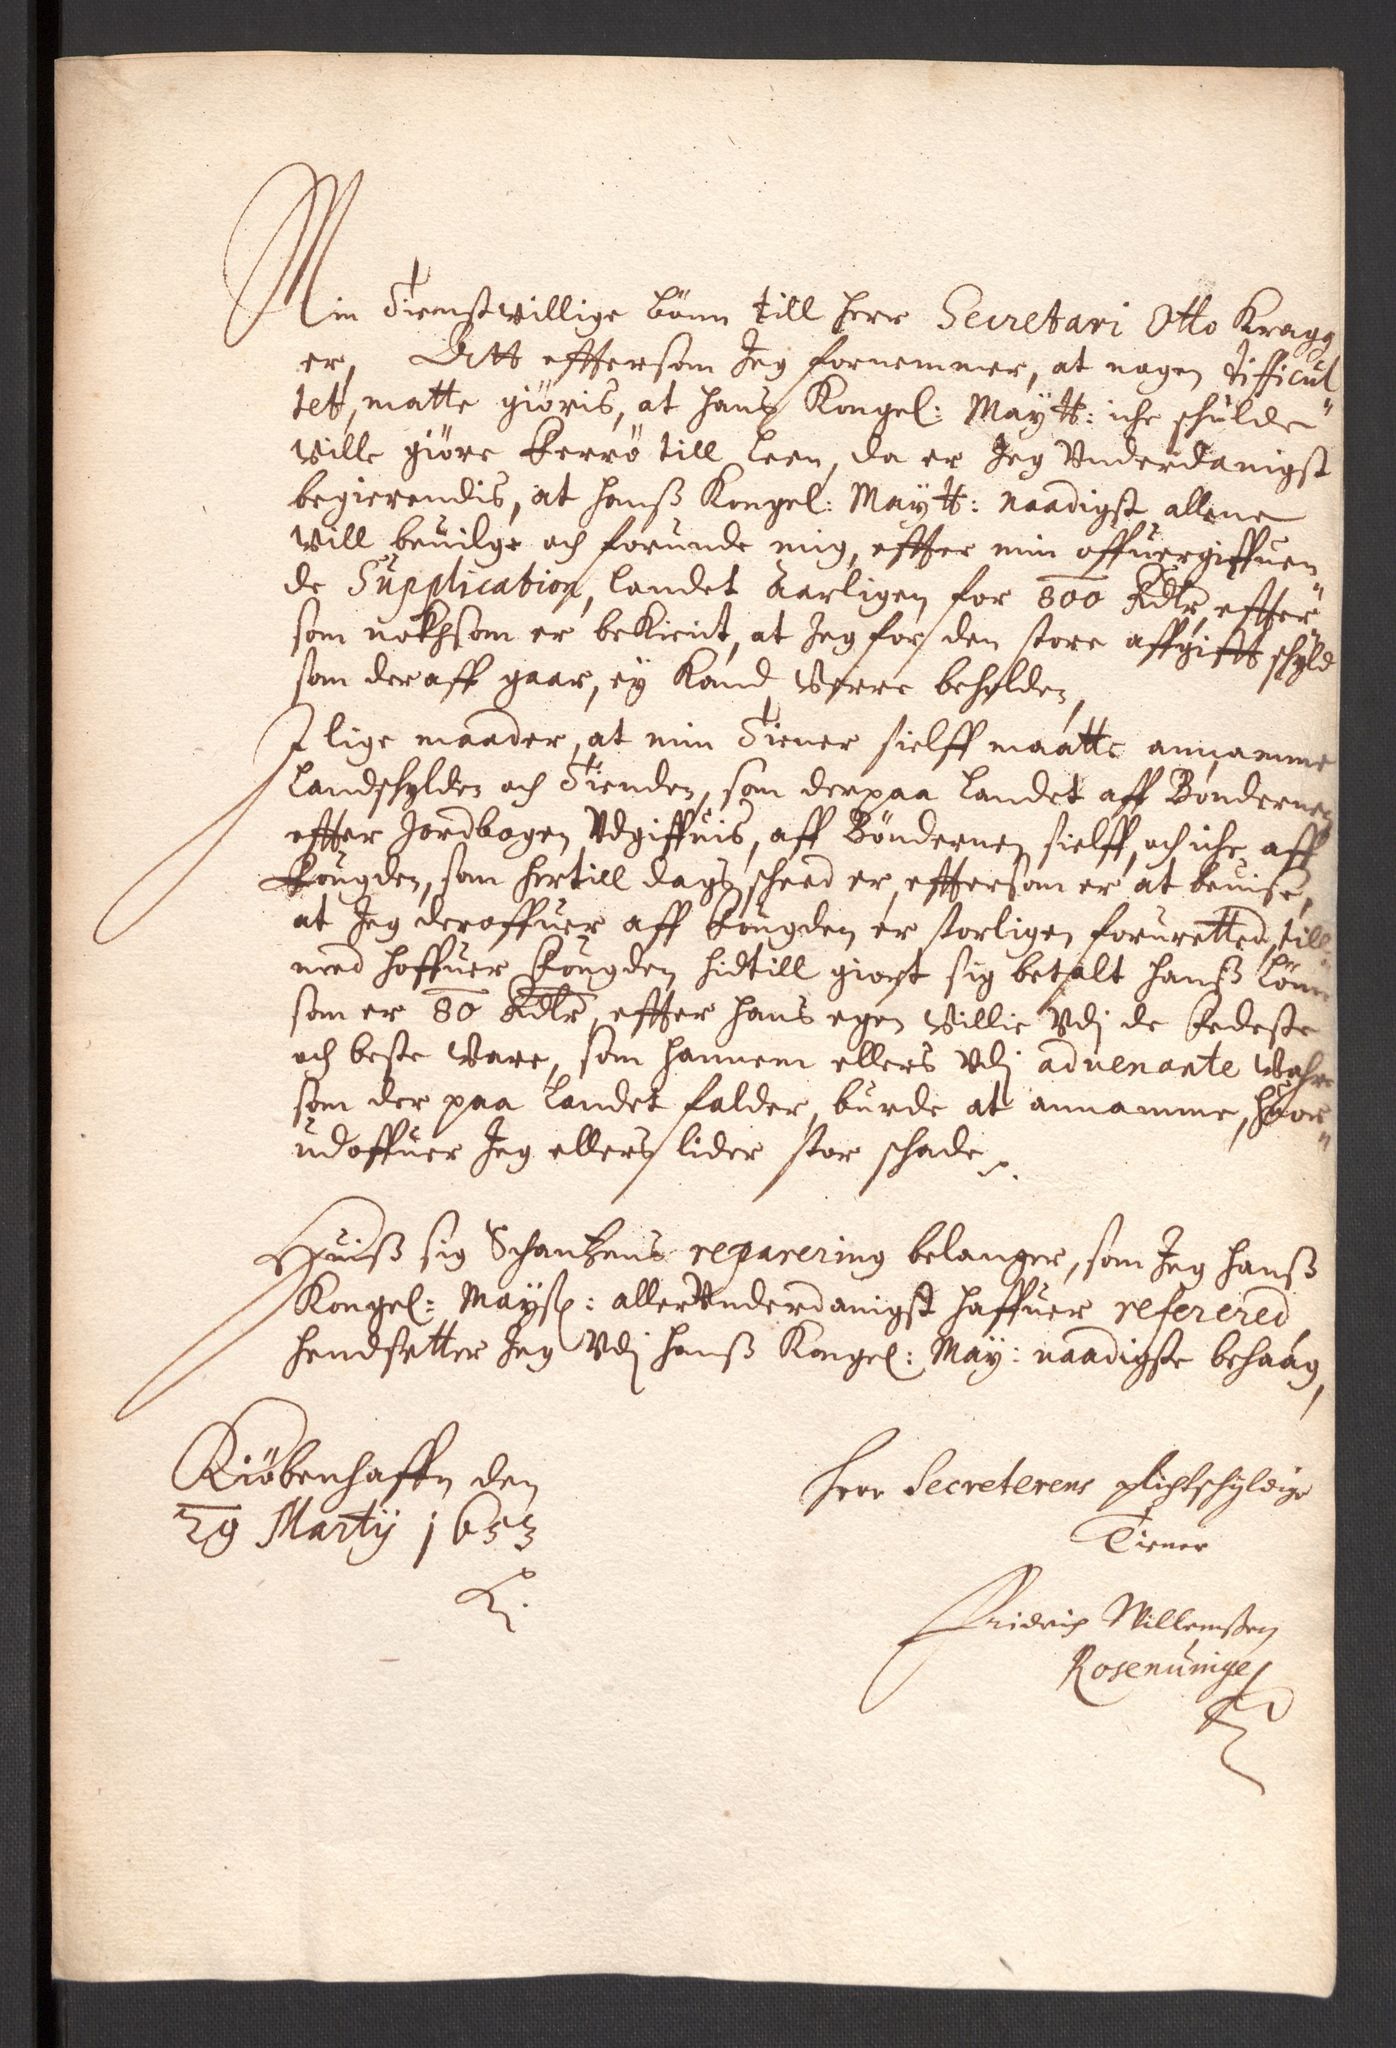 Min Tienstvillige bönn till herr Secretari Otto Kragg
er, Att efftersom Jeg fornemmer, at nogen difficul
tet, motte giöris, at hans Kongel: Maytt: iche schulde
ville giöre Ferrö till Leen, da er Jeg Vnderdanigst
begierendis, at hanß Kongel: Maytt: naadigst allene
vill beuilge och forunde mig, effter min offuergiffuen
de Supplication, Landet aarligen for 800 Rdlr, effter
som nokhsom er beKient, at Jeg for den store affgifft schyld
som deraff gaar, ey Kand verre beholden,
I lige maader, at min Tiener sielff maatte annamme
Landschylden och Tienden, som der paa Landet aff Bönderne
effter Jordbogen Vdgiffuis, aff Bönderne sielff, och iche aff
Fougden, som hertill dags scheed er, efftersom er at beuise,
at Jeg deroffuer aff Fougden er storligen foruretted, till
med haffuer Fougden hidtill giort sig betalt hanß Lönn
som er 80 Rdlr, effter hans egen Villie Vdj de Fedeste
och beste Vare, som hannem ellers Vdj aduenante Wahre
som der paa Landet falder, burde at annamme, huor
udoffuer Jeg ellers lider stor schade.
Huiß sig Schantzens reparering belanger, som Jeg hanß
Kongel: Mayst: allerVnderdanigst haffuer referered
hendsetter Jeg Vdj hanß Kongel: May: naadigste behaag,
Kiöbenhaffn den
29 Martij 1653
Herr Secreterens plichtschyldige
Tiener
Fridrich Willemßen
Rosenuinge